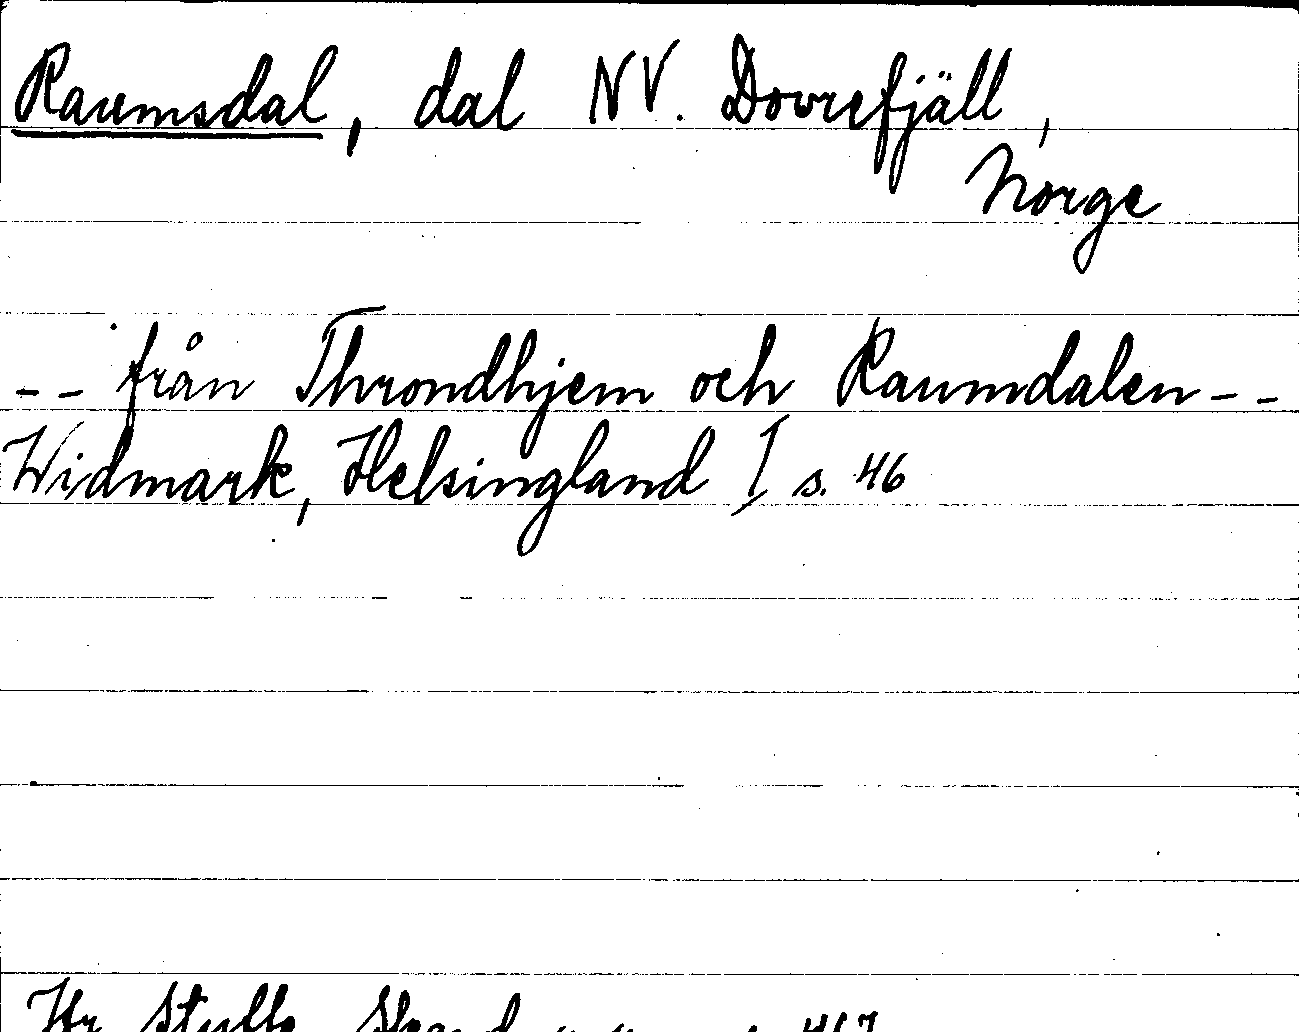 Raumsdal, dal NV. Dovrefjäll,
Norge
-- från Throndhjem och Raumdalen --
Widmark, Helsingland I s. 46
Hr Stylle, Skand